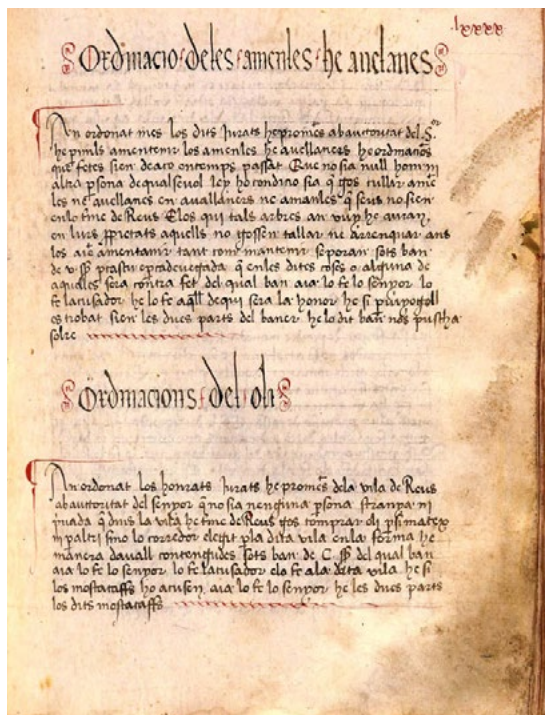 lxxxx
Ordinacio deles amenles he auelanes
An ordonat mes los dits Jurats he promes ab auctoritat del Sor
he per mils amentenir los amenles he auellaners he ordinacions
que fetes sien deaco en temps passat Que no sia null hom ni
altra psona de qualseuol ley ho condicio sia q gos tullar ame
les ne auellanes en auallaners ne amanles q seus no sien
enlo tme de Reus Elos qui tals arbres an vuy he auran,
en lurs ppietats aquells no gossen tallar ne arrenquar ans
los aie amentanir tant com mantenir se poran sots ban
de v ss per cascu per cadeuegada q enles dites coses o alguna de
aquales sera contra fet del qual ban aia lo te lo senyor lo
te lacusador he lo te aqll dequi sera la honor he si per
es trobat sien les dues parts del baner he lo dit ban nos puscha
solre
Ordinacions del oli
An ordonat los honrats Jurats he promes dela vila de Reus
ab auctoritat del senyor q no sia nenguna psona stranya ni
priuada q dins la vila he tme de Reus gos comprar oli per si matex
ni paltri sino lo corredor elegit pla dita vila enla forma he
manera dauall contengudes sots ban de C ss del qual ban
aia lo te lo senyor lo te lacusador elo te ala dita vila he si
los mostacaffs ho acusen, aia lo te lo senyor he les dues parts
los dits mostacaffs